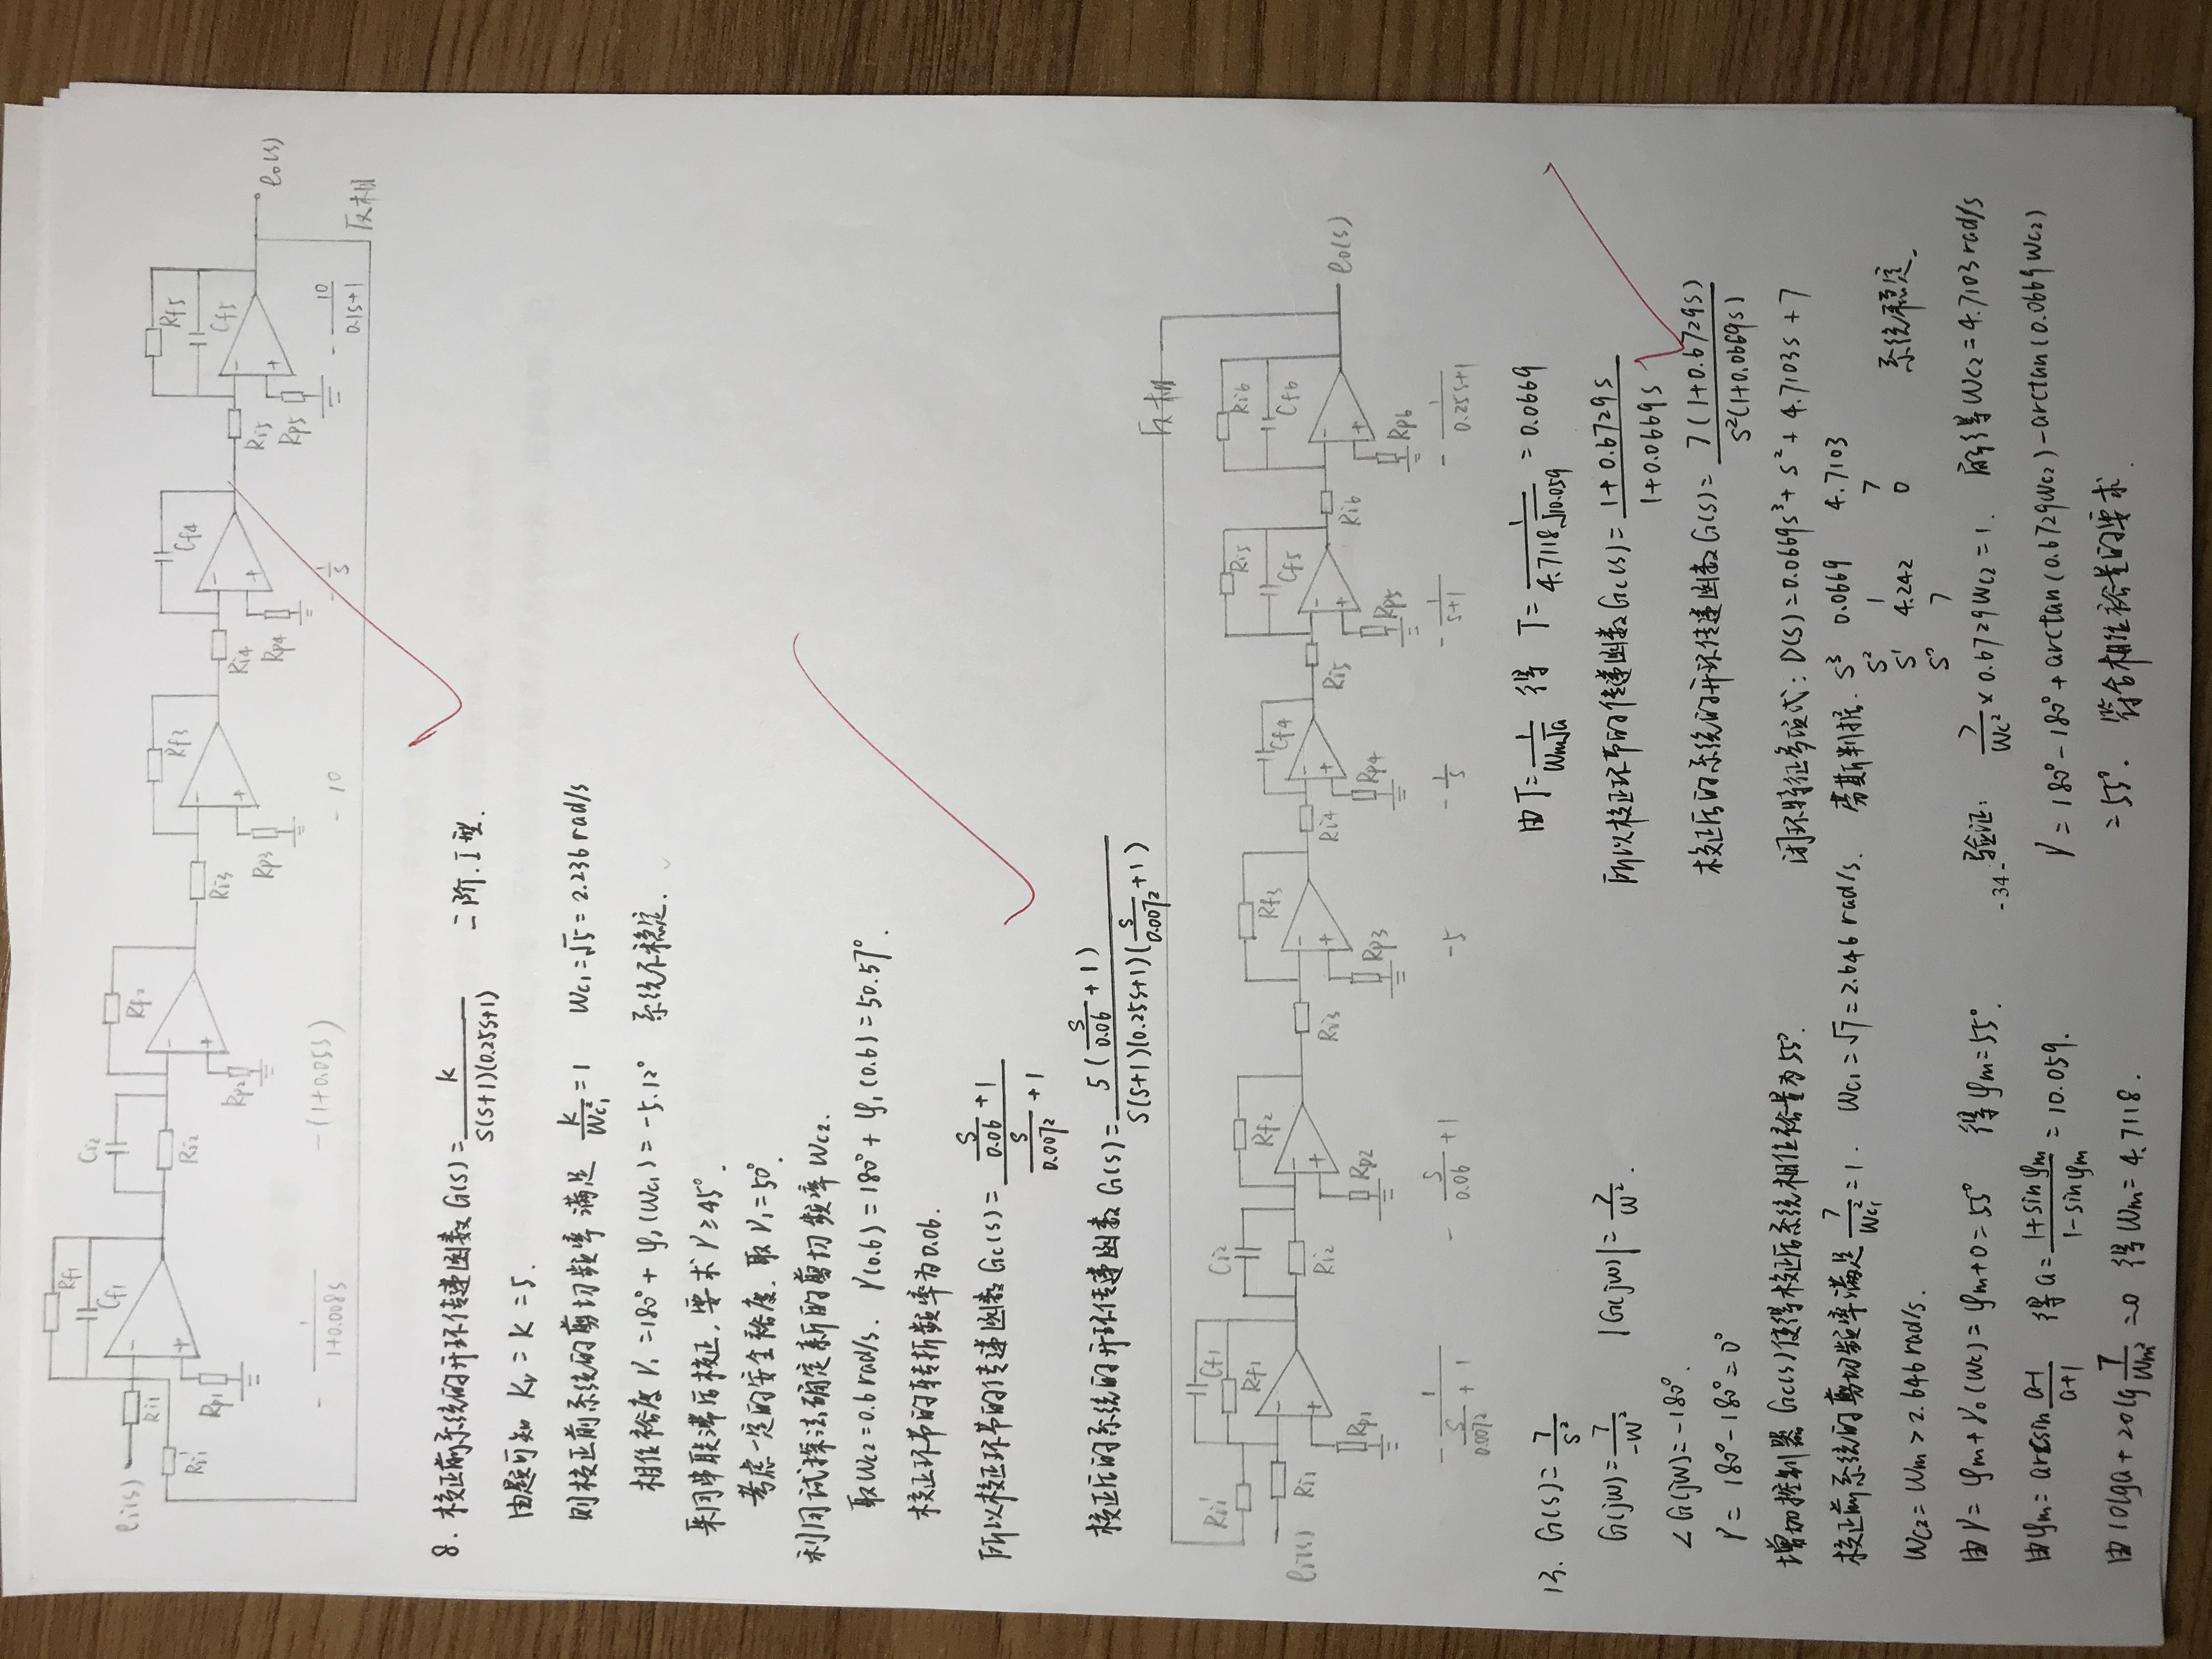 Rf1
Cf1
ei(s)
Ri1
Ri1'
Rp1
Ci2
Ri2
Rf2
Rp2
Ri3
Rf3
Rp3
Ri4
Cf4
Rp4
Ri5
Rf5
Cf5
Rp5
eo(s)
- 1/(1+0.008s)
-(1+0.05s)
-10
-1/s
- 10/(0.1s+1)
反相
8. 校正前系统的开环传递函数 G(s)= k/(s(s+1)(0.25s+1)) 二阶.I型.
由题可知 Kv = K = 5.
则校正前系统的剪切频率满足 k/Wc1² = 1 Wc1=√5 = 2.236 rad/s
相位裕度 γ1 = 180° + φ1(Wc1) = -5.12° 系统不稳定.
采用串联滞后校正, 要求 γ≥45°.
考虑一定的安全裕度, 取 γ1=50°.
利用试探法确定新的剪切频率 Wc2.
取Wc2=0.6 rad/s. γ(0.6) = 180° + φ1(0.6) = 50.57°.
校正环节的转折频率为0.06.
所以校正环节的传递函数 Gc(s) = (s/0.06 + 1)/(s/0.0072 + 1)
校正后的系统的开环传递函数 G(s) = 5(s/0.06 + 1)/(s(s+1)(0.25s+1)(s/0.0072 + 1))
反相
Ri1'
Cf1
Rf1
ei(s)
Ri1
Rp1
Ci2
Ri2
Rf2
Rp2
Ri3
Rf3
Rp3
Ri4
Cf4
Rp4
Ri5
Ri5
Cf5
Rp5
Ri6
Ri6
Cf6
Rp6
eo(s)
- 1/(s/0.0072 + 1)
- s/0.06 + 1
-5
-1/s
- 1/(s+1)
- 1/(0.25s+1)
13. G(s) = 7/s²
G(jw) = 7/-w² |G(jw)| = 7/w².
∠G(jw) = -180°.
γ = 180° - 180° = 0°
增加控制器 Gc(s)使得校正后系统相位裕量为55°.
校正前系统的剪切频率满足 7/Wc1² = 1. Wc1 = √7 = 2.646 rad/s.
Wc2 = Wm > 2.646 rad/s.
由γ = φm + γ0(Wc) = φm + 0 = 55° 得φm = 55°.
由φm = arcsin (a-1)/(a+1) 得 a = (1+sinφm)/(1-sinφm) = 10.059.
由10lga + 20lg 7/Wm² = 0 得 Wm = 4.7118.
由T = 1/(Wm√a) 得 T = 1/(4.7118√10.059) = 0.0669
所以校正环节的传递函数 Gc(s) = (1+0.6729s)/(1+0.0669s)
校正后的系统的开环传递函数 G(s) = 7(1+0.6729s)/(s²(1+0.0669s))
闭环特征多项式: D(s) = 0.0669s³ + s² + 4.7103s + 7
劳斯判据. s³ 0.0669 4.7103
s² 1 7
s¹ 4.242 0 系统稳定.
s⁰ 7
验证: 7/Wc² × 0.6729Wc2 = 1. 解得Wc2 = 4.7103 rad/s
γ = 180° - 180° + arctan(0.6729Wc2) - arctan(0.0669Wc2)
= 55°. 符合相位裕量的要求.
- 34 -